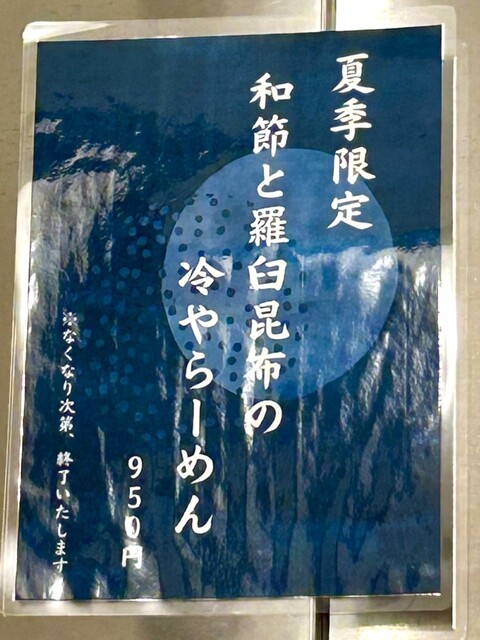 夏季限定
和節と羅臼昆布の
冷やらーめん
950円
※なくなり次第、終了いたします